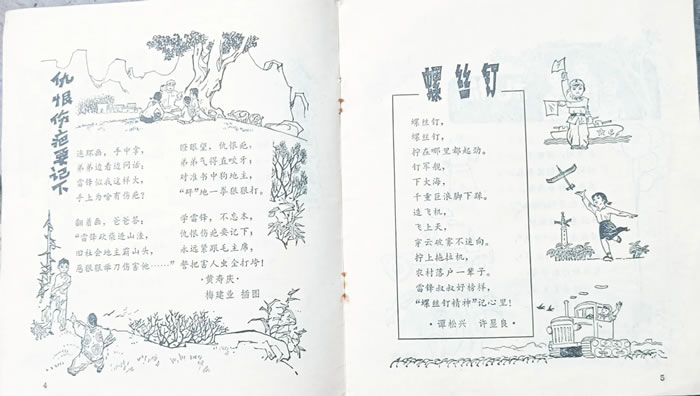 仇恨伤疤要记下
连环画，手中拿，
弟弟边看边问话：
雷锋似我这样大，
手上为啥有伤疤？
翻着画，爸爸答：
“雷锋砍柴进山洼，
旧社会地主霸山头，
恶狠狠举刀伤害他……”
瞪眼望，仇恨疤，
弟弟气得直咬牙；
对准书中狗地主，
“砰”地一拳狠狠打。
学雷锋，不忘本，
仇恨伤疤要记下；
永远紧跟毛主席，
誓把害人虫全打垮！
·黄寿庆·
梅建业 插图
4
螺丝钉
螺丝钉，
螺丝钉，
拧在哪里都起劲。
钉军舰，
下大海，
千重巨浪脚下踩。
造飞机，
飞上天，
穿云破雾不迷向。
拧上拖拉机，
农村落户一辈子。
雷锋叔叔好榜样，
“螺丝钉精神”记心里！
·谭松兴 许显良·
5